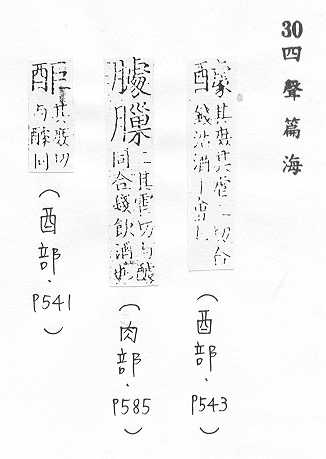 30 四聲篇海
醵 其據其虐二切合
錢沽酒
(酉部.P543)
二其虐切与醵
同合錢飲酒也
(肉部.P585)
其據切
与醵同
(酉部.P541)